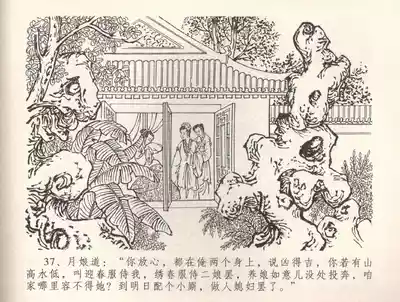 37. 月娘道：“你放心，都在俺两个身上，说凶得吉，你若有山
高水低，叫迎春服侍我，绣春服侍二娘罢，养娘如意儿没处投奔，咱
家哪里容不得她？到明日配个小厮，做人媳妇罢了。”